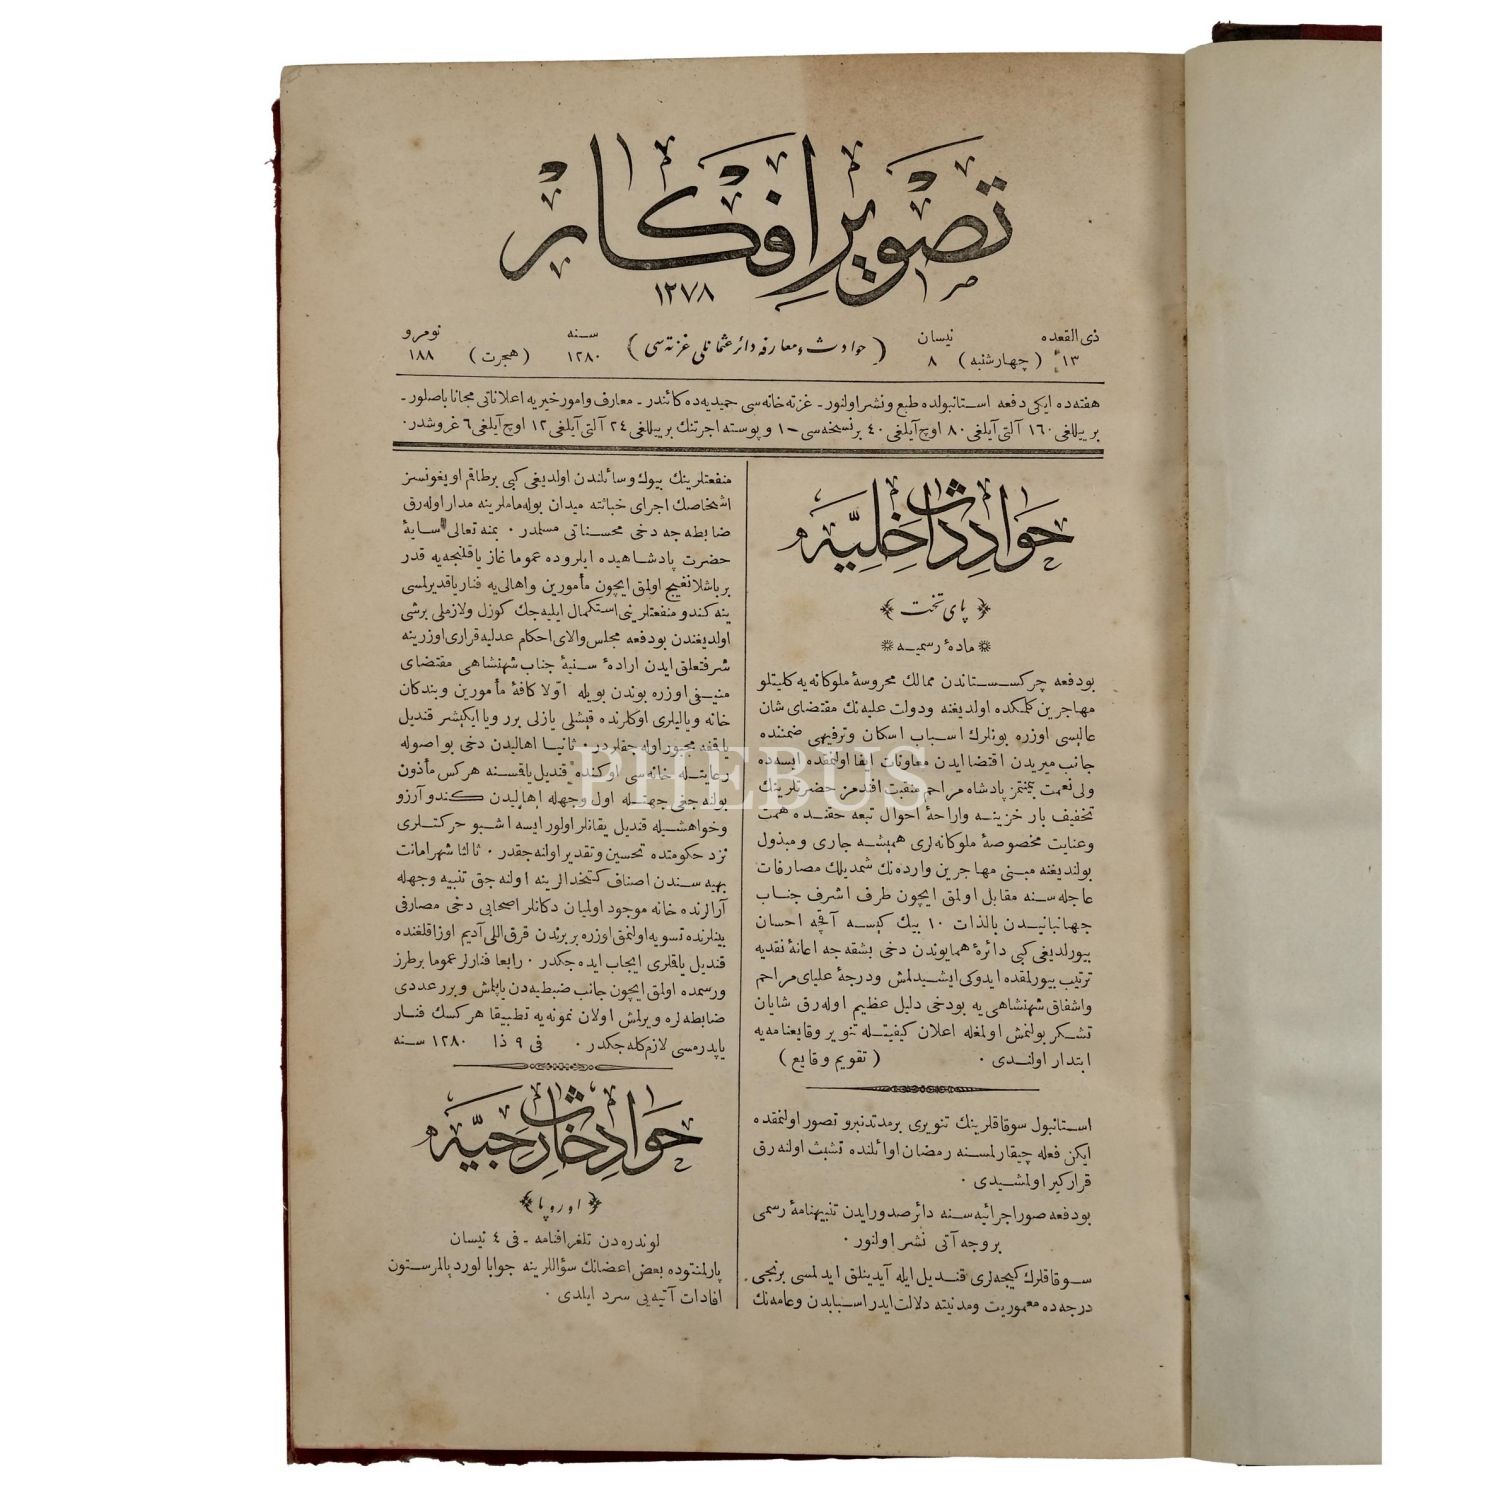 تصویر افکار
١٢٧٨
ذی القعده
١٣ (چهارشنبه)
نیسان
٨
(حوادث و معارفه دائر عثمانلی غزته‌سی)
سنه
١٢٨٠
(هجرت)
نومرو
١٨٨
هفته‌ده ایکی دفعه استانبولده طبع و نشر اولنور ـ غزته خانه‌سی حمیدیه‌ده کائندر ـ معارف و امور خیریه اعلاناتی مجانا باصلور ـ
بر ییللغی ١٦٠ آلتی آیلغی ٨٠ اوچ آیلغی ٤٠ بر نسخه‌سی ـ١ و پوسته اجرتنك بر ییللغی ٢٤ آلتی آیلغی ١٢ اوچ آیلغی ٦ غروشدر.
حوادث داخلیه
﴿پای تخت﴾
* مادهٔ رسمیه *
بو دفعه چرکسستاندن ممالك محروسهٔ ملوکانه‌یه کلیتلو
مهاجرین کلمکده اولدیغنه و دولت علیه‌نك مقتضای شان
عالیسی اوزره بونلرك اسباب اسکان و ترفیهی ضمننده
جانب میریدن اقتضا ایدن معاونات ایفا اولنمقده ایسه‌ده
ولی نعمت بیمنتمز پادشاه مراحم منقبت افندمز حضرتلرینك
تخفیف بار خزینه و اراحهٔ احوال تبعه حقنده همت
و عنایت مخصوصهٔ ملوکانه‌لری همیشه جاری و مبذول
بولندیغنه مبنی مهاجرین وارده‌نك شمدیلك مصارفات
عاجله‌سنه مقابل اولمق ایچون طرف اشرف جناب
جهانبانیدن بالذات ١٠ بیك کیسه آقچه احسان
بیورلدیغی کبی دائرهٔ همایوندن دخی بشقه‌جه اعانهٔ نقدیه
ترتیب بیورلمقده ایدوکی ایشیدلمش و درجهٔ علیای مراحم
و اشفاق شهنشاهی‌یه بودخی دلیل عظیم اوله‌رق شایان
تشکر بولنمش اولمغله اعلان کیفیتله تنویر وقایعنامه‌یه
ابتدار اولندی . (تقویم وقایع)
استانبول سوقاقلرینك تنویری بر مدتدنبرو تصور اولنمقده
ایکن فعله چیقارلمسنه رمضان اوائلنده تشبث اولنه‌رق
قرارکیر اولمشیدی .
بو دفعه صور اجرائیه‌سنه دائر صدور ایدن تنبیهنامهٔ رسمی
بر وجه آتی نشر اولنور .
سوقاقلرك کیجه‌لری قندیل ایله آیدینلق ایدلمسی برنجی
درجه‌ده معموریت و مدنیته دلالت ایدر اسبابدن و عامه‌نك
منفعتلرینك بیوك وسائلندن اولدیغی کبی بر طاقم اویغونسز
اشخاصك اجرای خباثته میدان بوله‌ماملرینه مدار اوله‌رق
ضابطه‌جه دخی محسناتی مسلمدر . بمنه تعالی سایهٔ
حضرت پادشاهیده ایلروده عموما غاز یاقلنجه‌یه قدر
بر باشلانغیج اولمق ایچون مأمورین و اهالی‌یه فنار یاقدیرلمسی
ینه کندو منفعتلرینی استکمال ایلیه‌جك کوزل و لازملی بر شی
اولدیغندن بو دفعه مجلس والای احکام عدلیه قراری اوزرینه
شرفتعلق ایدن ارادهٔ سنیهٔ جناب شهنشاهی مقتضای
منیفی اوزره بوندن بویله اولا کافهٔ مأمورین و بندکان
خانه و یالیلری اوکلرنده قیشلی یازلی برر و یا ایکیشر قندیل
یاقمغه مجبور اوله‌جقلردر . ثانیا اهالیدن دخی بو اصوله
رعایتله خانه‌سی اوکنده قندیل یاقسنه هرکس مأذون
بولنه‌جغی جهتله اول وجهله اهالیدن کندو آرزو
و خواهشیله قندیل یقانلر اولور ایسه اشبو حرکتلری
نزد حکومتده تحسین و تقدیر اولنه‌جقدر . ثالثا شهر امانت
بهیه‌سندن اصناف کتخدالرینه اولنه‌جق تنبیه وجهله
آرالرنده خانه موجود اولمیان دکانلر اصحابی دخی مصارفی
بینلرنده تسویه اولنمق اوزره بربرندن قرق اللی آدیم اوزاقلغنده
قندیل یاقلری ایجاب ایده‌جکدر . رابعا فنارلر عموما بر طرز
و رسمده اولمق ایچون جانب ضبطیه‌دن یاپلمش و برر عددی
ضابطه‌لره ویرلمش اولان نمونه‌یه تطبیقا هرکسك فنار
یاپدرمسی لازم کله‌جکدر . فی ٩ ذا ١٢٨٠ سنه
حوادث خارجیه
﴿اوروپا﴾
لوندره‌دن تلغرافنامه ـ فی ٤ نیسان
پارلمنتوده بعض اعضانك سؤاللرینه جوابا لورد پالمرستون
افادات آتیه‌یی سرد ایلدی .
PHEBUS